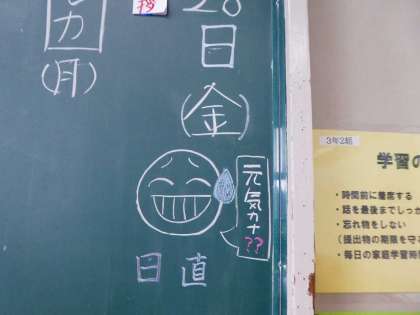 28
日
(金)
元気カナ
??
日直
カ
(月)
3年2組
学習の
・時間前に着席する
・話を最後までしっか
・忘れ物をしない
(提出物の期限を守る
・毎日の家庭学習時